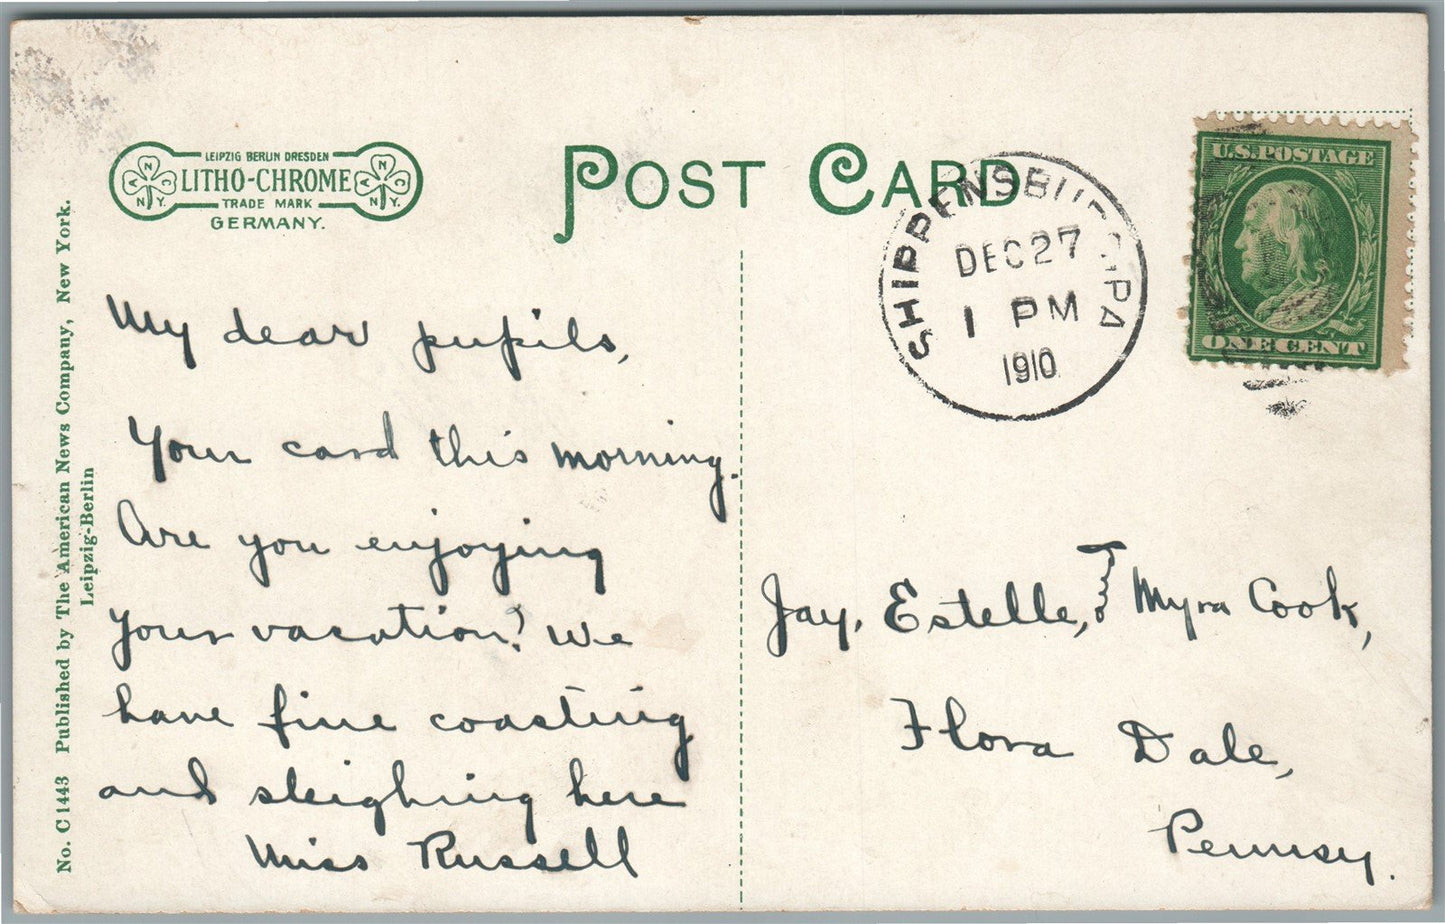 LEIPZIG BERLIN DRESDEN
LITHO-CHROME
TRADE MARK
GERMANY.
POST CARD
SHIPPENSBURG, PA
DEC 27
1 PM
1910
U.S. POSTAGE
ONE CENT
No. C 1443 Published by The American News Company, New York.
Leipzig-Berlin
My dear pupils,
Your card this morning.
Are you enjoying
your vacation? We
have fine coasting
and sleighing here
Miss Russell
Jay, Estelle, and Myra Cook,
Flora Dale,
Pennsy.